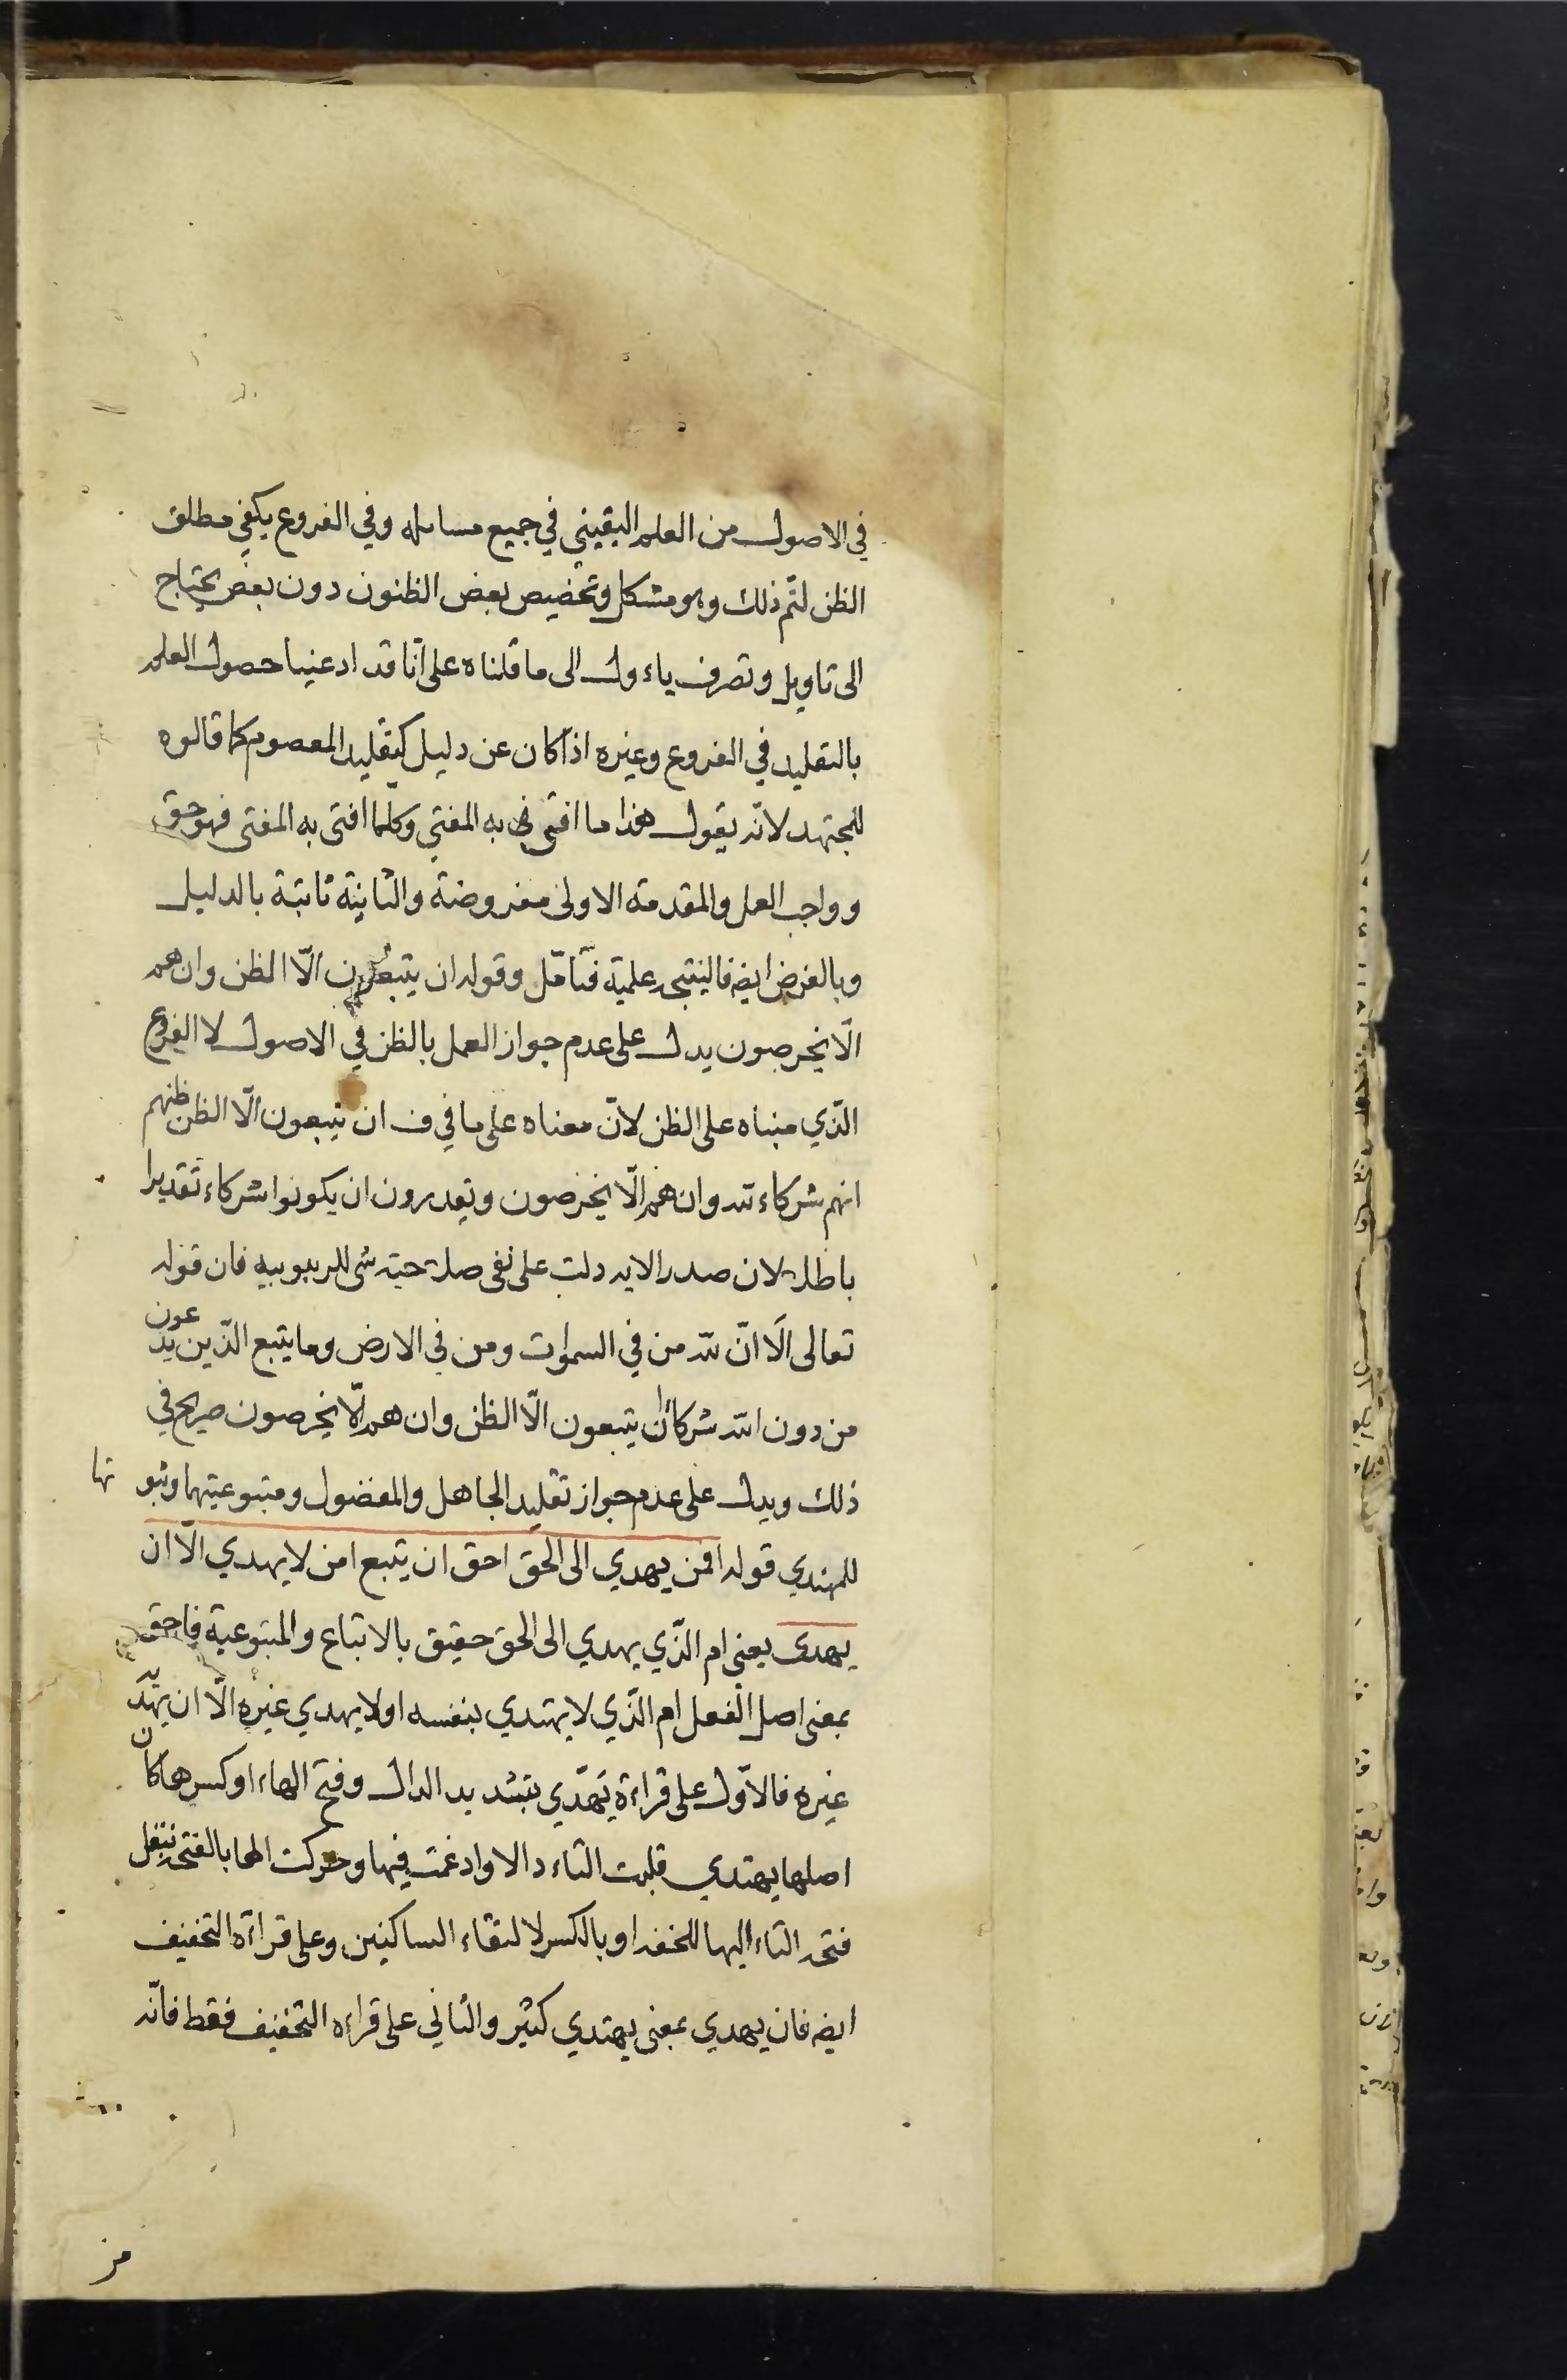 في الاصول من العلم اليقيني في جميع مسائله وفي الفروع يكفي مطلق
الظن لتم ذلك وهو مشكل وتخصيص بعض الظنون دون بعض يحتاج
الى تاويل وتصرف ياءول الى ما قلناه على انّا قد ادعينا حصول العلم
بالتقليد في الفروع وغيره اذا كان عن دليل كتقليد المعصوم كما قالوه
للمجتهد لانه يقول هذا ما افتى به المفتي وكلّما افتى به المفتى فهو حق
وواجب العمل والمقدمة الاولى مفروضة والثانية ثابتة بالدليل
وبالفرض ايضه فالنتيجه علمية فتامّل وقوله ان يتبعون الّا الظن وان هم
الّا يخرصون يدل على عدم جواز العمل بالظن في الاصول لا الفروع
الّذي مبناه على الظن لانّ معناه على ما في ف ان يتبعون الّا الظن ظنهم
انهم شركاء لله وان هم الّا يخرصون ويقدرون ان يكونوا شركاء تقديرا
باطلا لان صدر الايه دلت على نفى صلاحيته شى للربوبيه فان قوله
تعالى الَا انّ لله من في السموات ومن في الارض وما يتبع الّذين يدعون
من دون الله شركاء ان يتبعون الّا الظن وان هم الّا يخرصون صريح في
ذلك ويدل على عدم جواز تقليد الجاهل والمفضول ومتبوعيتهما وثبوتها
للمهتدي قوله افمن يهدي الى الحق احق ان يتبع امن لا يهدي الّا ان
يهدى يعنى ام الّذي يهدي الى الحق حقيق بالاتباع والمتبوعية فاحق
بمعنى اصل الفعل ام الّذي لا يهتدي بنفسه او لا يهدي غيره الّا ان يهديه
غيره فالاوّل على قراءة يَهَدّي بتشديد الدال وفتح الهاء او كسرها كان
اصلها يهتدي قلبت التاء دالا وادغمت فيها وحركت الها بالفتحه بنقل
فتحه التاء اليها للخفه او بالكسر لالتقاء الساكنين وعلى قراءة التخفيف
ايضه فان يهدي بمعنى يهتدي كثير والثاني على قراءه التخفيف فقط فانّه
من